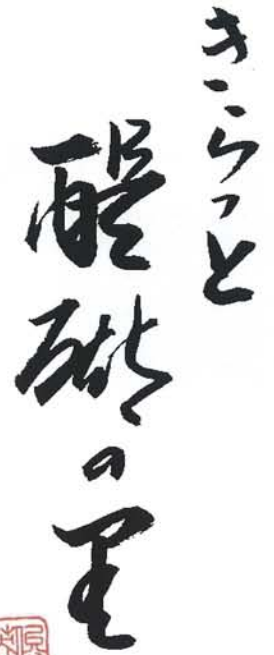 きらっと
醍醐の里